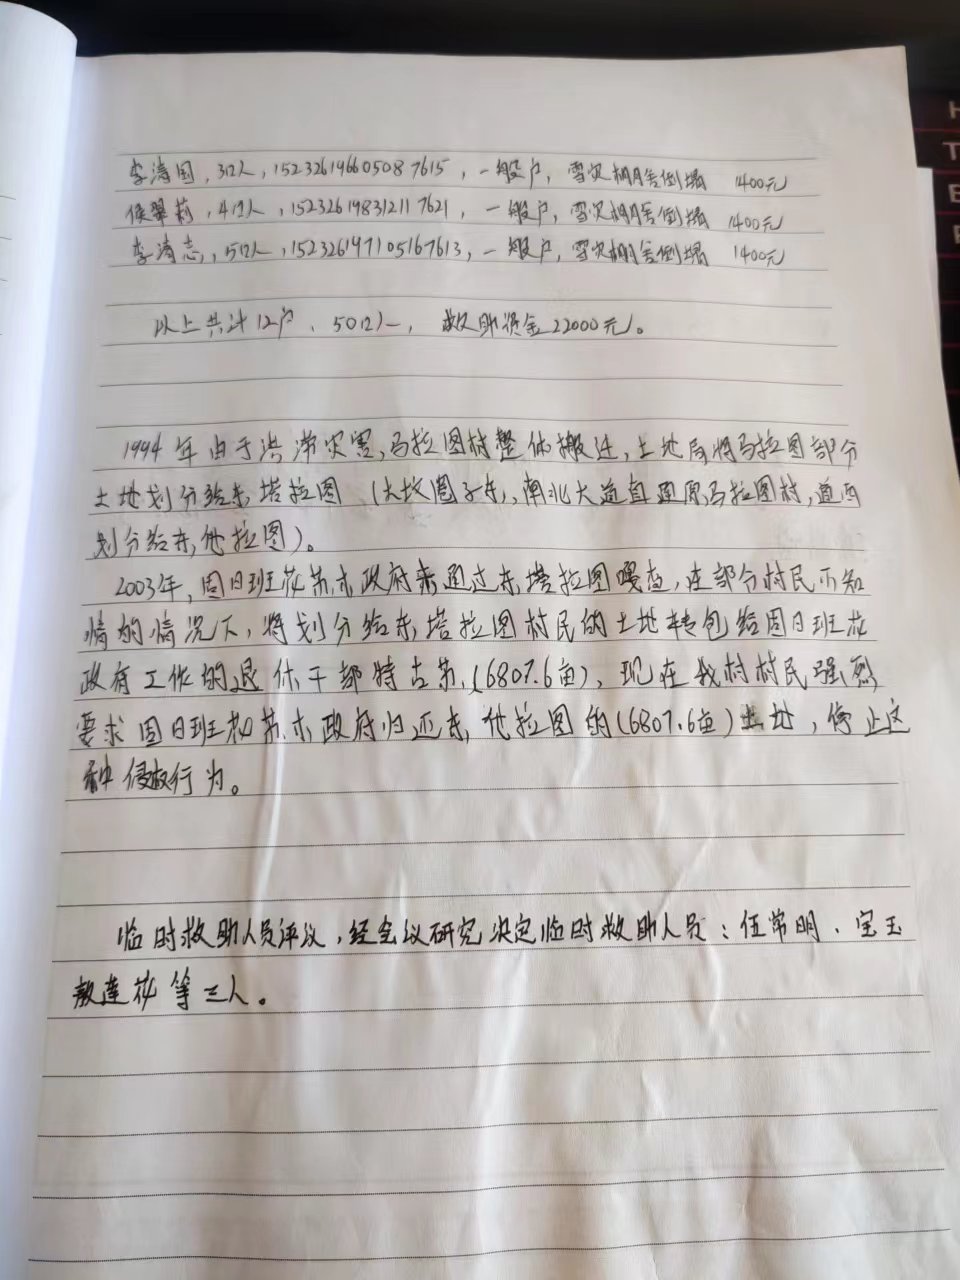 李涛国，3口人，152326196605087615，一般户，雪灾棚舍倒塌 1400元
侯翠莉，4口人，152326198312117621，一般户，雪灾棚舍倒塌 1400元
李涛志，5口人，152326197105167613，一般户，雪灾棚舍倒塌 1400元
以上共计12户、50口人，救助资金22000元。
1994年由于洪涝灾害，马拉图村整体搬迁，土地局将马拉图部分
土地划分给东塔拉图（大坟圈子东，南北大道直通原马拉图村，道西
划分给东他拉图）。
2003年，固日班花苏木政府未通过东塔拉图嘎查，在部分村民不知
情的情况下，将划分给东塔拉图村民的土地转包给固日班花
政府工作的退休干部特古苏（6807.6亩），现在我村村民强烈
要求固日班花苏木政府归还东他拉图的（6807.6亩）土地，停止这
种侵权行为。
临时救助人员评议，经会议研究决定临时救助人员：伍常明、宝玉
敖莲花等三人。